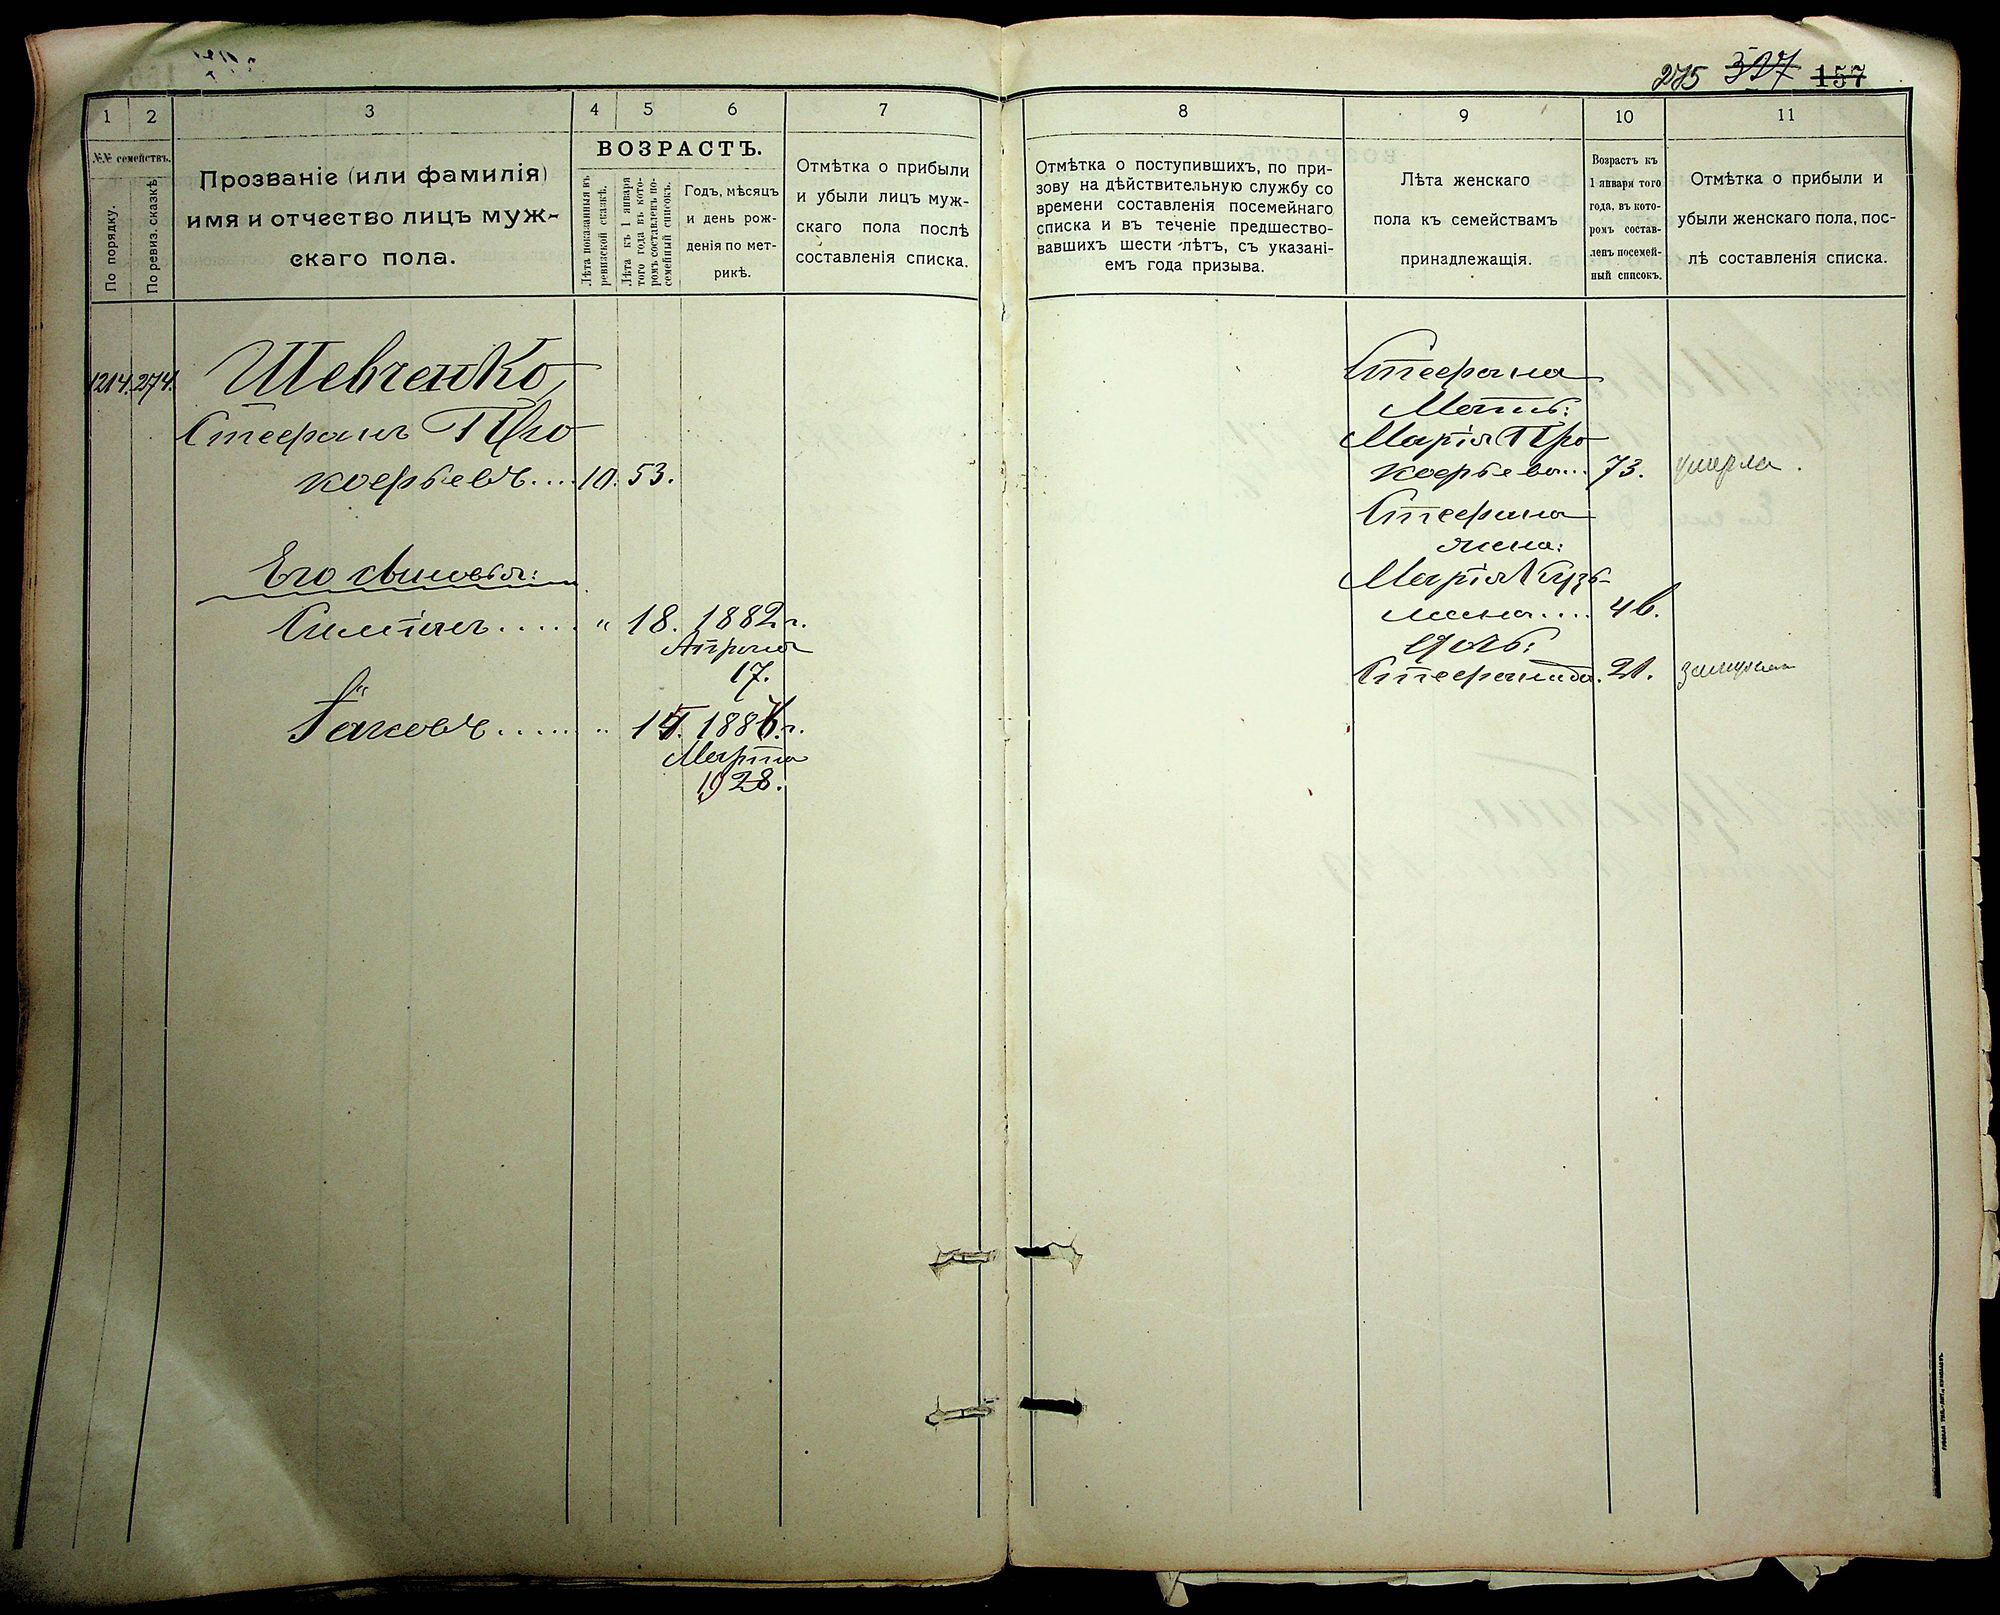 275 327 157
1 2 3 4 5 6 7 8 9 10 11
№№ семействъ.
По порядку.
По ревиз. сказкѣ
Прозваніе (или фамилія)
имя и отчество лицъ муж-
скаго пола.
ВОЗРАСТЪ.
Лѣта показанныя въ
ревизской сказкѣ.
Лѣта къ 1 января
того года въ кото-
ромъ составленъ по-
семейный списокъ.
Годъ, мѣсяцъ
и день рож-
денія по мет-
рикѣ.
Отмѣтка о прибыли
и убыли лицъ муж-
скаго пола послѣ
составленія списка.
Отмѣтка о поступившихъ, по при-
зову на дѣйствительную службу со
времени составленія посемейнаго
списка и въ теченіе предшество-
вавшихъ шести лѣтъ, съ указані-
емъ года призыва.
Лѣта женскаго
пола къ семействамъ
принадлежащія.
Возрастъ къ
1 января того
года, въ кото-
ромъ состав-
ленъ посемей-
ный списокъ.
Отмѣтка о прибыли и
убыли женскаго пола, пос-
лѣ составленія списка.
1214. 274. Шевченко
Стефанъ Про
кофьевъ.... 10. 53.
Его сыновья:
Симіонъ..... " 18. 1882 г.
Апрѣля
17.
Іаковъ...... " 1886 г.
Марта
28.
Стефана
Мать:
Марія Про
кофьева... 73. умерла.
Стефана
жена:
Марія Кузь-
мина.... 46.
дочь:
Стефанида. 21. замужем